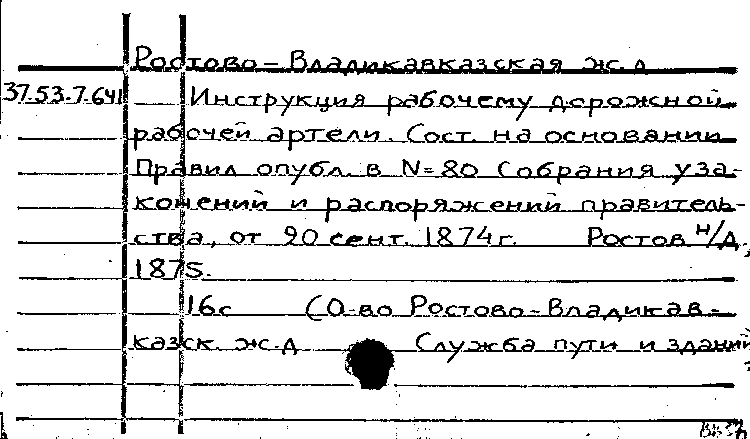 Ростово-Владикавказская ж.д
37.53.7.641 Инструкция рабочему дорожной
рабочей артели. Сост. на основании
Правил опубл. в N=80 Собрания уза-
конений и распоряжений правитель-
ства, от 20 сент. 1874г. Ростов н/Д,
1875.
16с (О-во Ростово-Владикав-
казск. ж.д Служба пути и зданий